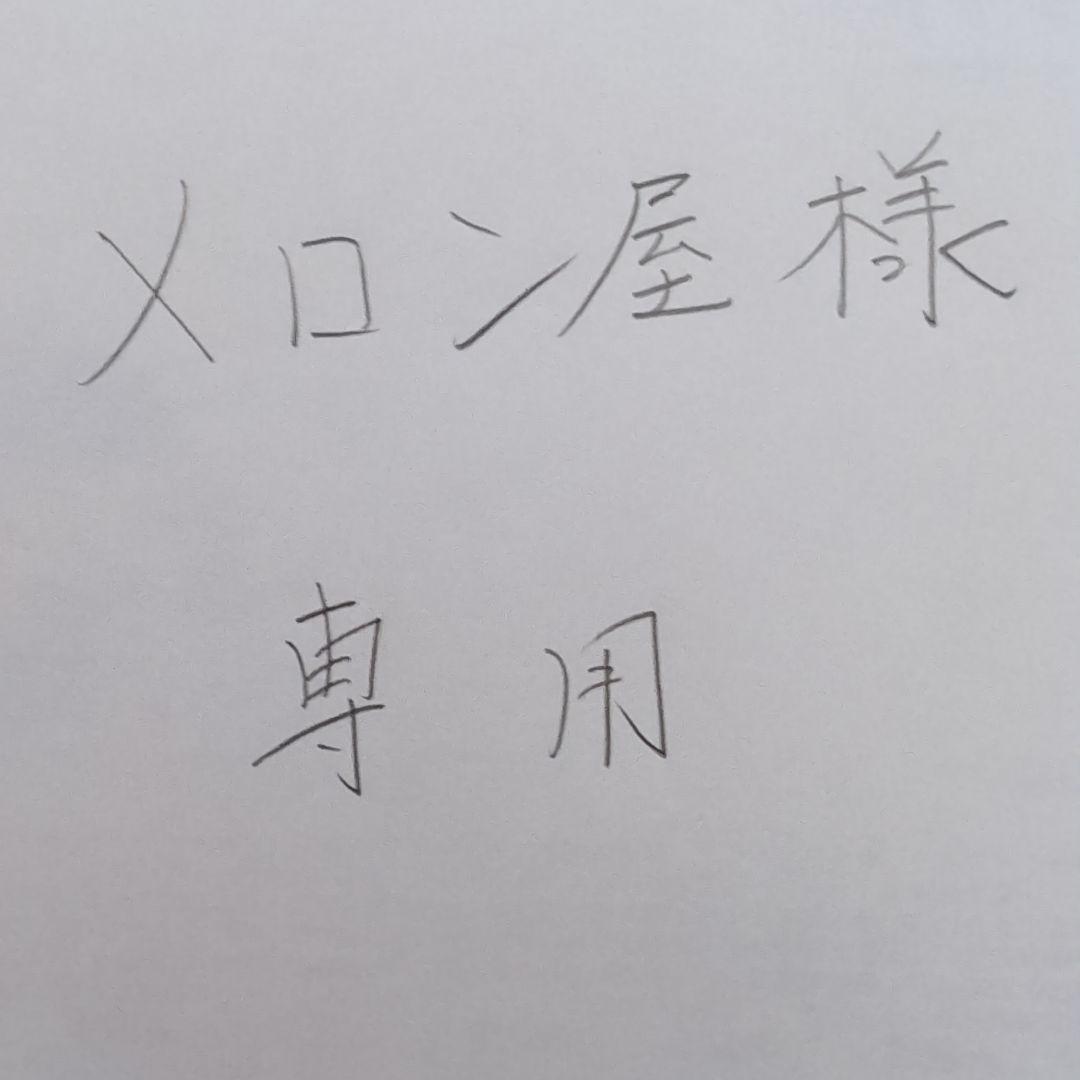 メロン屋様
専用